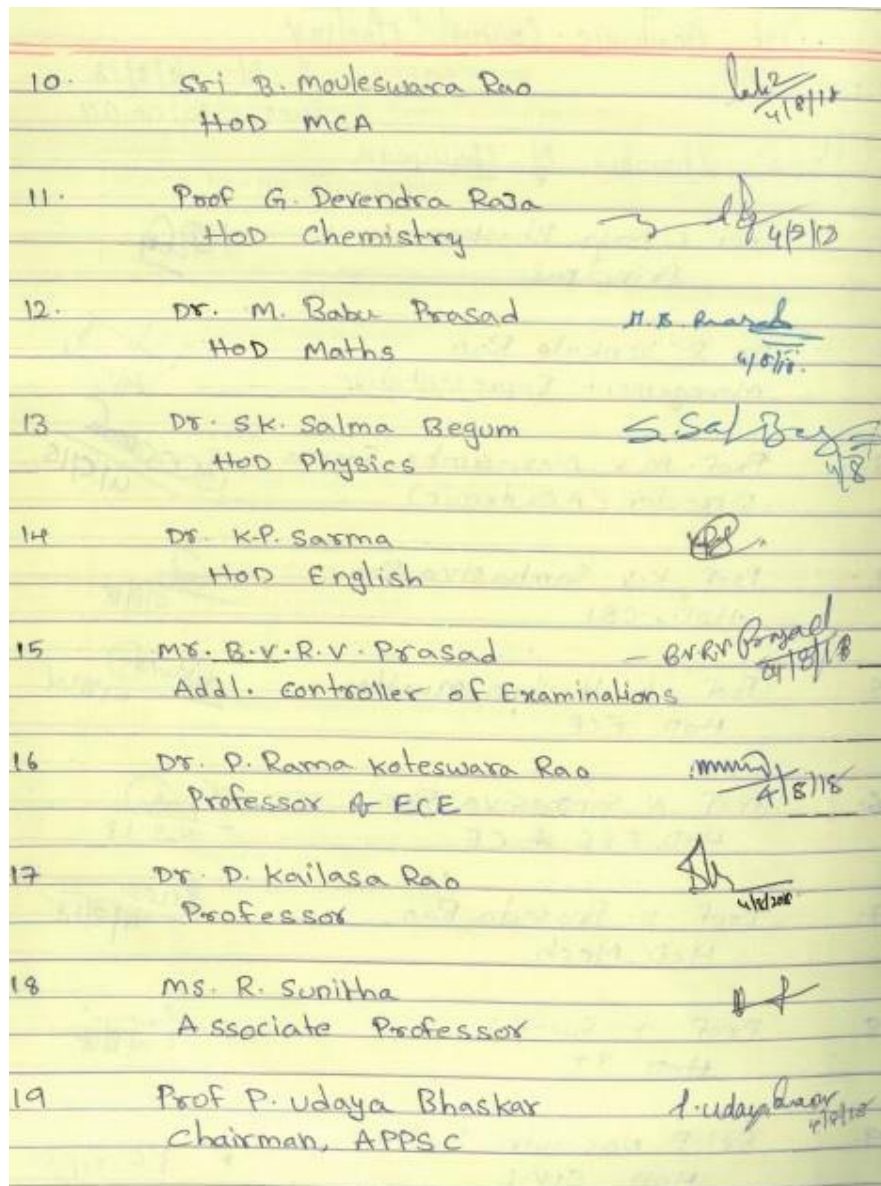 10. Sri B. Mouleswara Rao
HOD MCA
4/8/18
11. Prof G. Devendra Raja
HOD Chemistry
4/8/18
12. Dr. M. Babu Prasad
M. B. Prasad
HOD Maths
4/8/18.
13 Dr. SK. Salma Begum
HOD Physics
4/8
14 Dr. K.P. Sarma
HOD English
15 Mr. B.V.R.V. Prasad - BVRV Prasad
04/8/18
Addl. controller of Examinations
16 Dr. P. Rama Koteswara Rao
Professor of ECE 4/8/18
17 Dr. D. Kailasa Rao
Professor 4/8/2018
18 Ms. R. Sunitha
Associate Professor
19 Prof P. Udaya Bhaskar
4/8/18
Chairman, APPSC